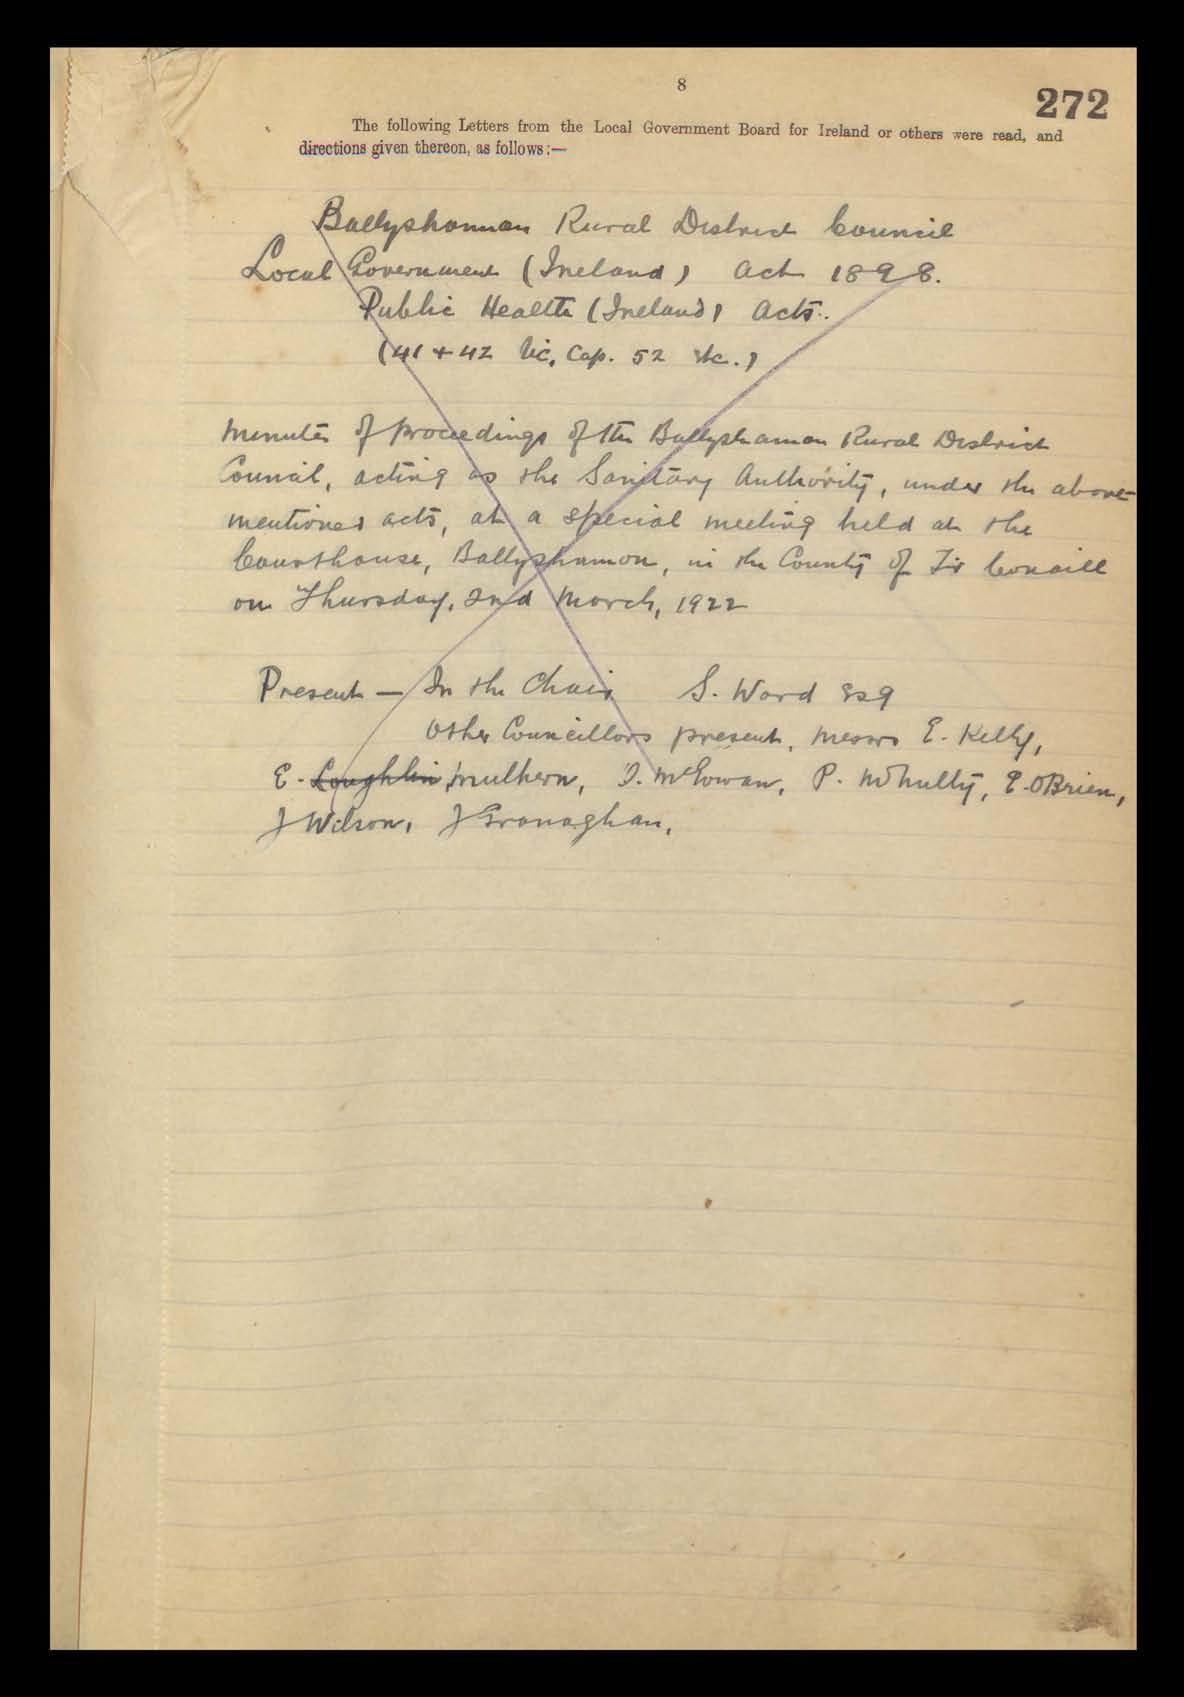 8
272
The following Letters from the Local Government Board for Ireland or others were read, and
directions given thereon, as follows:—
Ballyshannon Rural District Council
Local Government (Ireland) Act 1898.
Public Health (Ireland) Acts.
(41 + 42 Vic, Cap. 52 etc.)
Minutes of proceedings of the Ballyshannon Rural District
Council, acting as the Sanitary Authority, under the above-
mentioned acts, at a special meeting held at the
Courthouse, Ballyshannon, in the County of Tir Conaill
on Thursday, 2nd March, 1922
Present — In the Chair S. Ward Esq
Other Councillors present, Messrs E. Kelly,
E. Loughlin, Mulhern, T. McGowan, P. McNulty, E. OBrien,
J Wilson, J Granaghan,